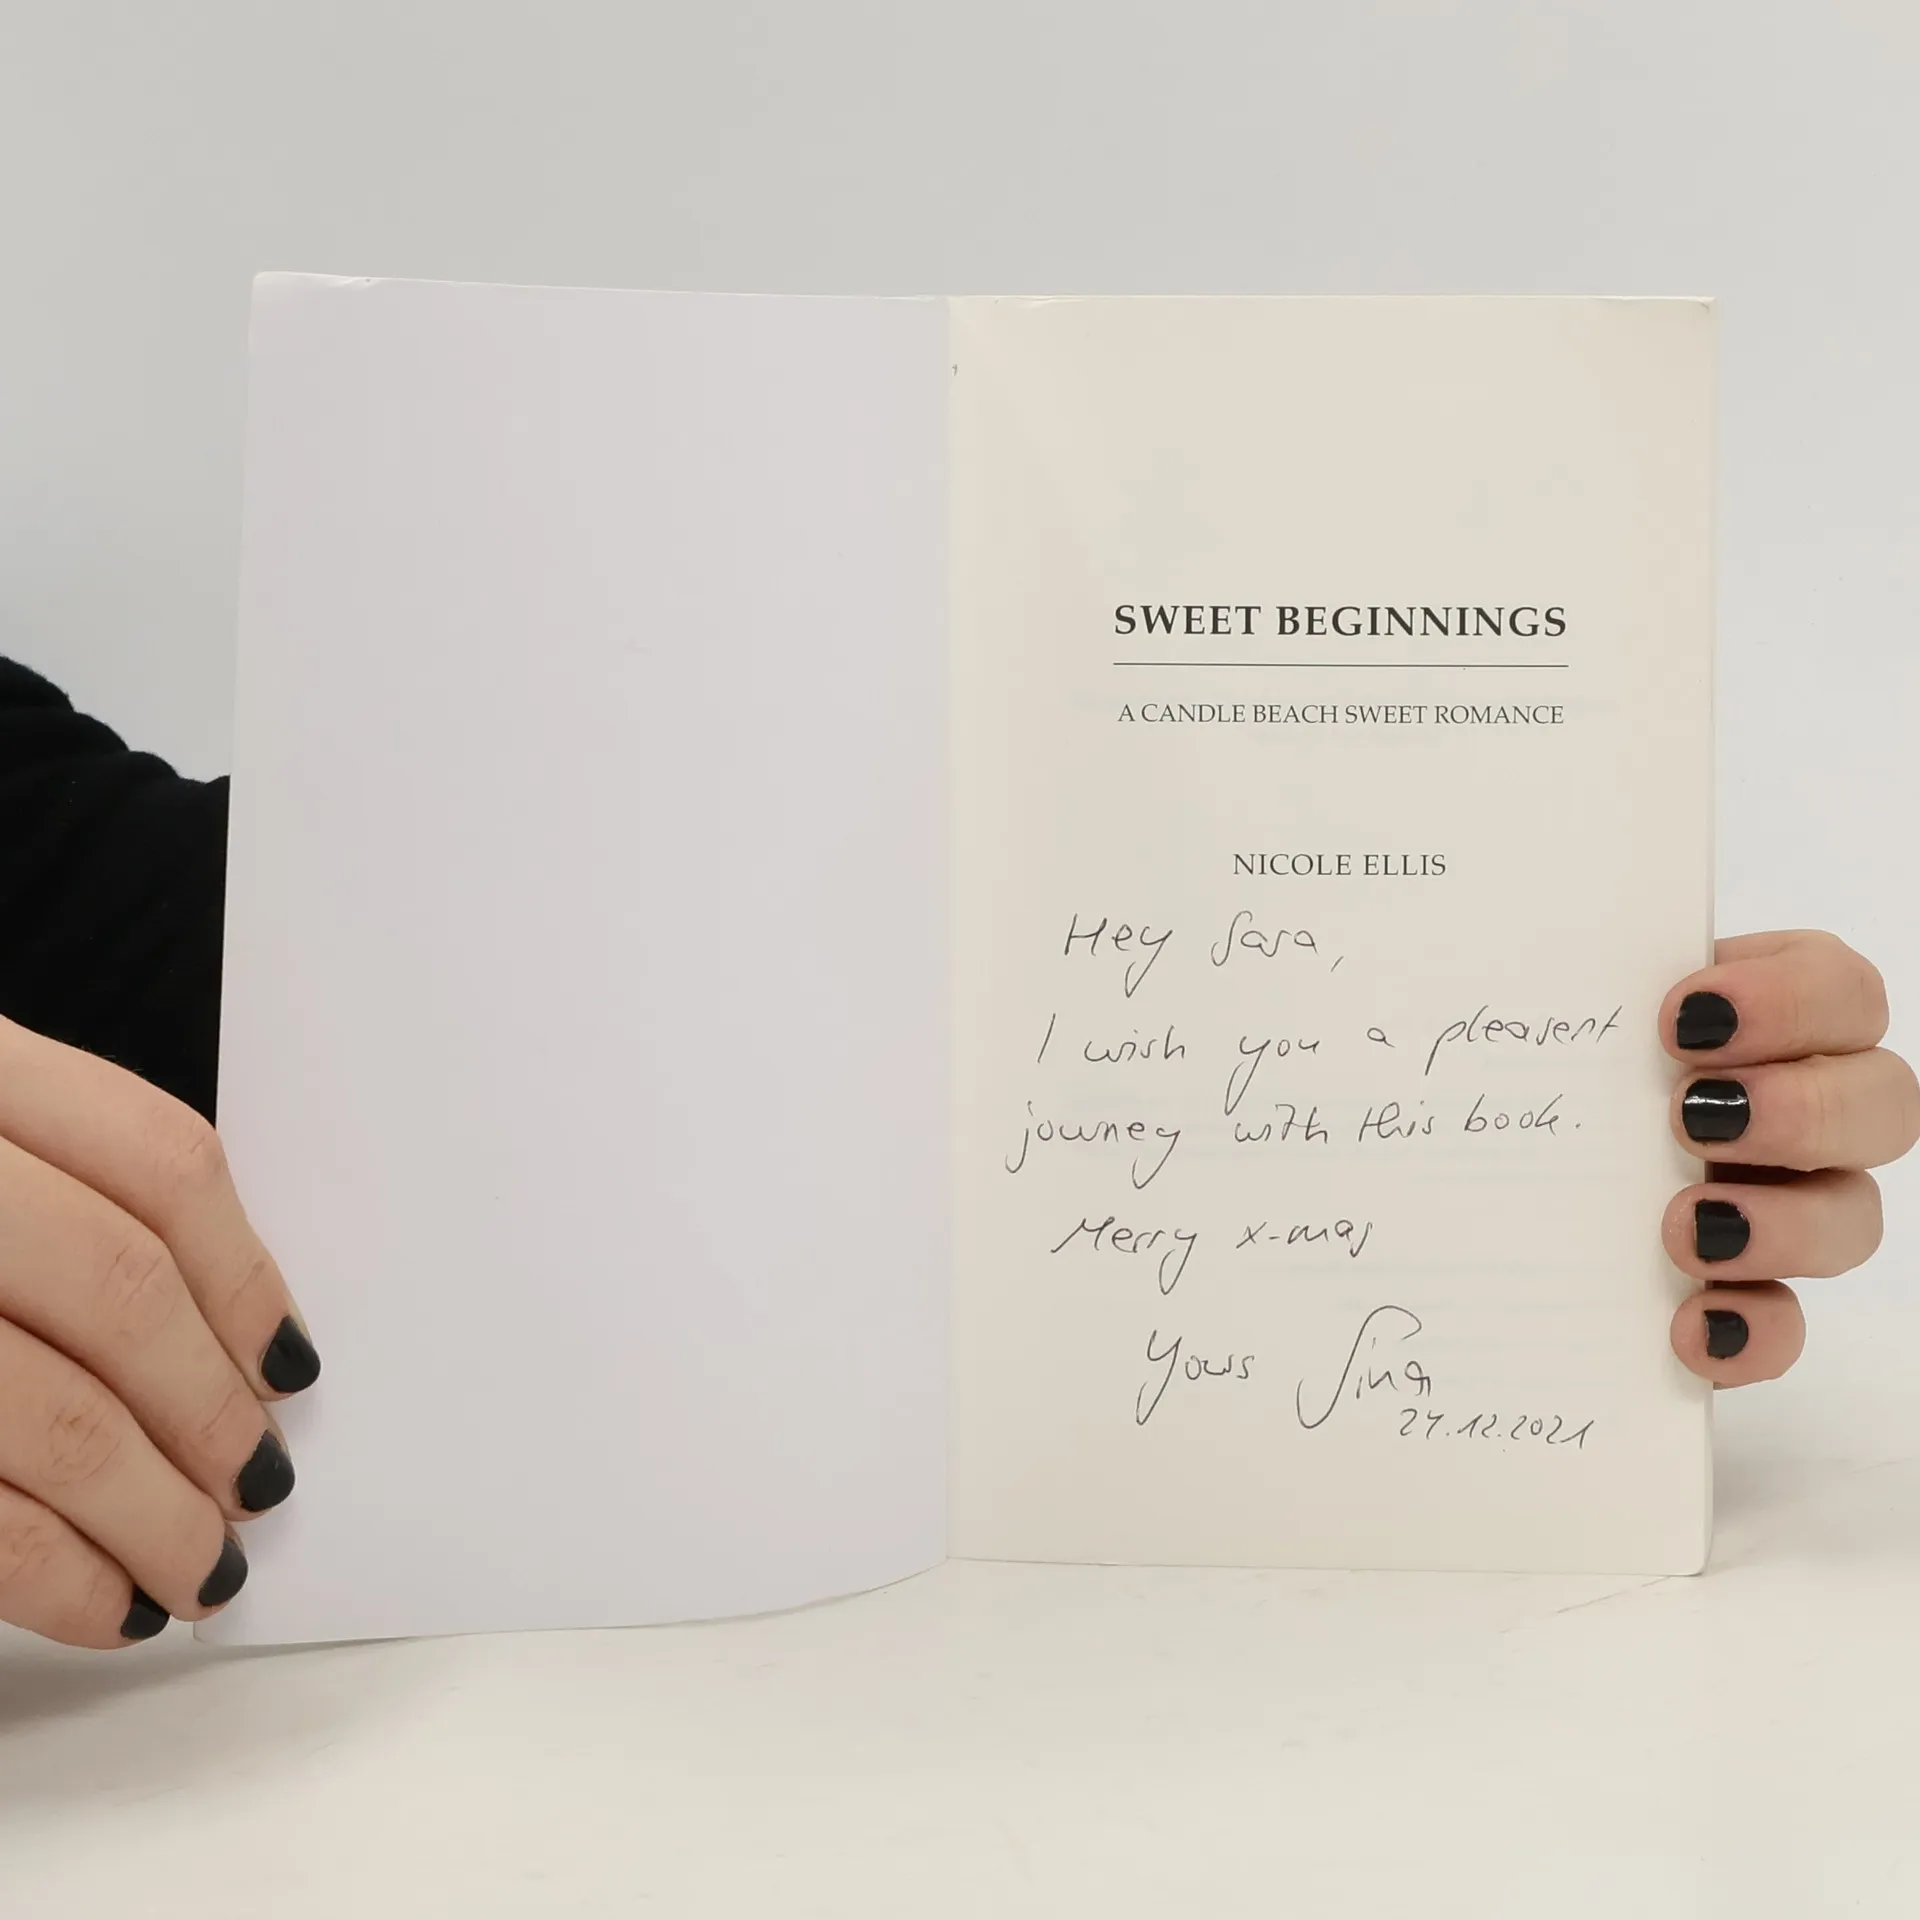 SWEET BEGINNINGS
A CANDLE BEACH SWEET ROMANCE
NICOLE ELLIS
Hey Sara,
I wish you a pleasent
journey with this book.
Merry x-mas
Yours Sina
24.12.2021